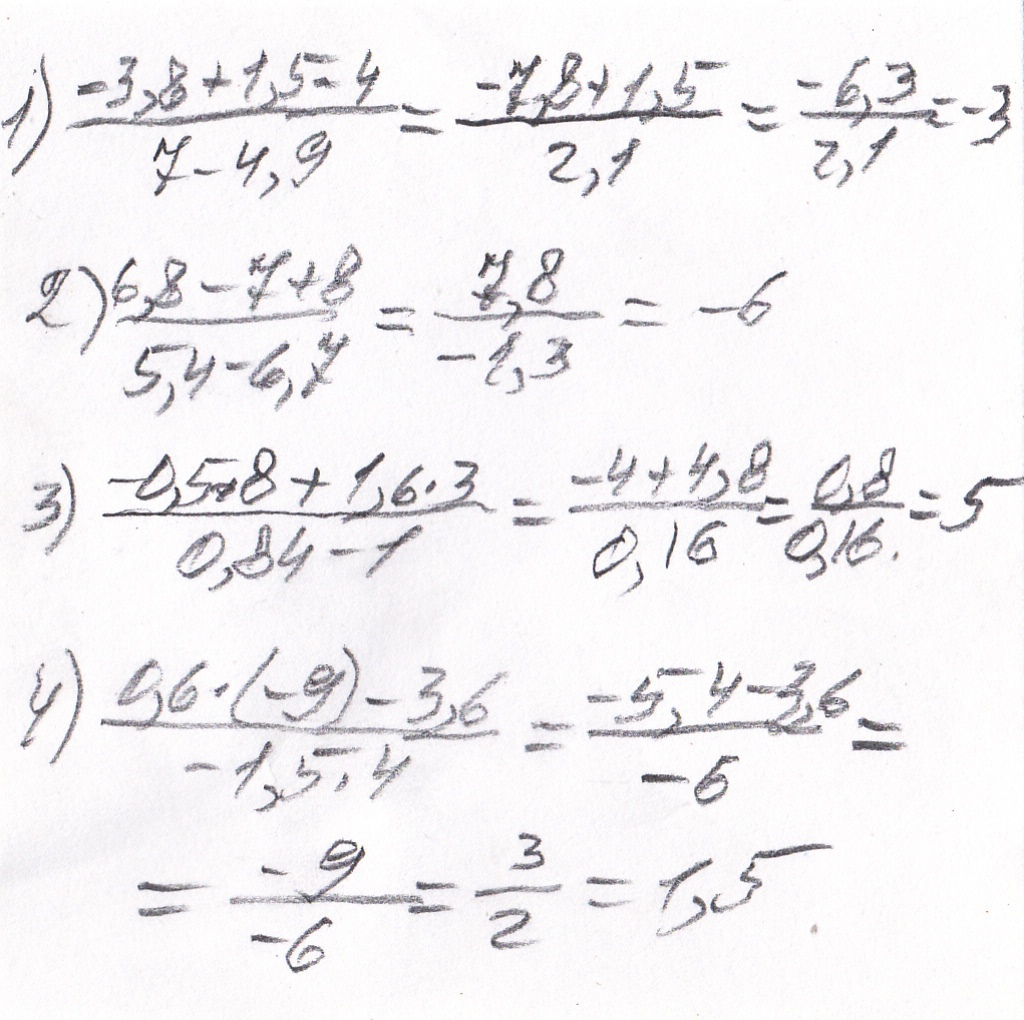 1) (-3,8+1,5-4)/(7-4,9) = (-7,8+1,5)/2,1 = -6,3/2,1 = -3
2) (6,8-7+8)/(5,4-6,7) = 7,8/-1,3 = -6
3) (-0,5·8+1,6·3)/(0,84-1) = (-4+4,8)/0,16 = 0,8/0,16. = 5
4) (0,6·(-9)-3,6)/(-1,5·4) = (-5,4-3,6)/-6 =
= -9/-6 = 3/2 = 1,5